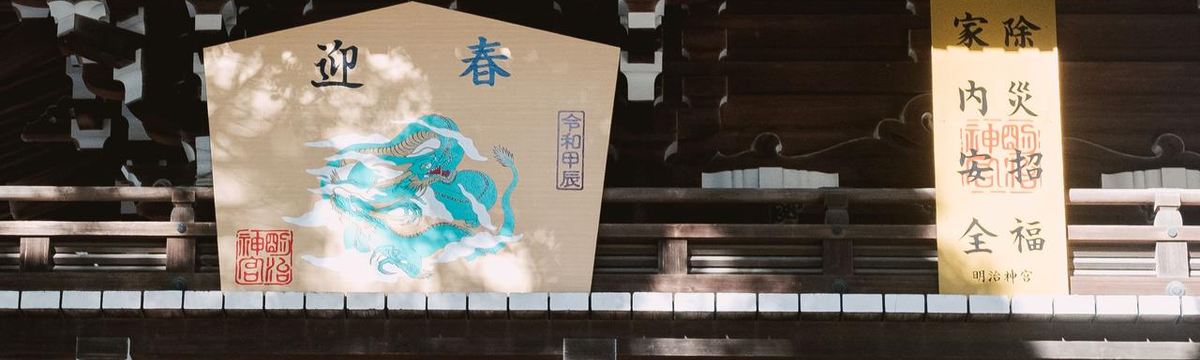 迎春
令和甲辰
明治神宮
除災招福
家内安全
明治神宮
明治神宮